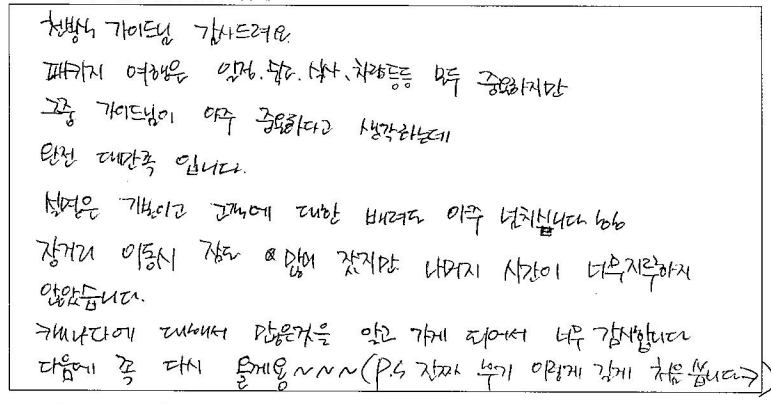 천방식 가이드님 감사드려요.
패키지 여행은 일정, 숙소, 식사, 차량등등 모두 중요하지만
그중 가이드님이 아주 중요하다고 생각하는데
완전 대만족 입니다.
설명은 기본이고 고객에 대한 배려도 아주 넘치십니다 bb
장거리 이동시 잠도 많이 잤지만 나머지 시간이 너무지루하지
않았습니다.
캐나다에 대해서 많은것을 알고 가게 되어서 너무 감사합니다
다음에 꼭 다시 올게용~~~(P.S 진짜 후기 이렇게 길게 처음 씁니다→)